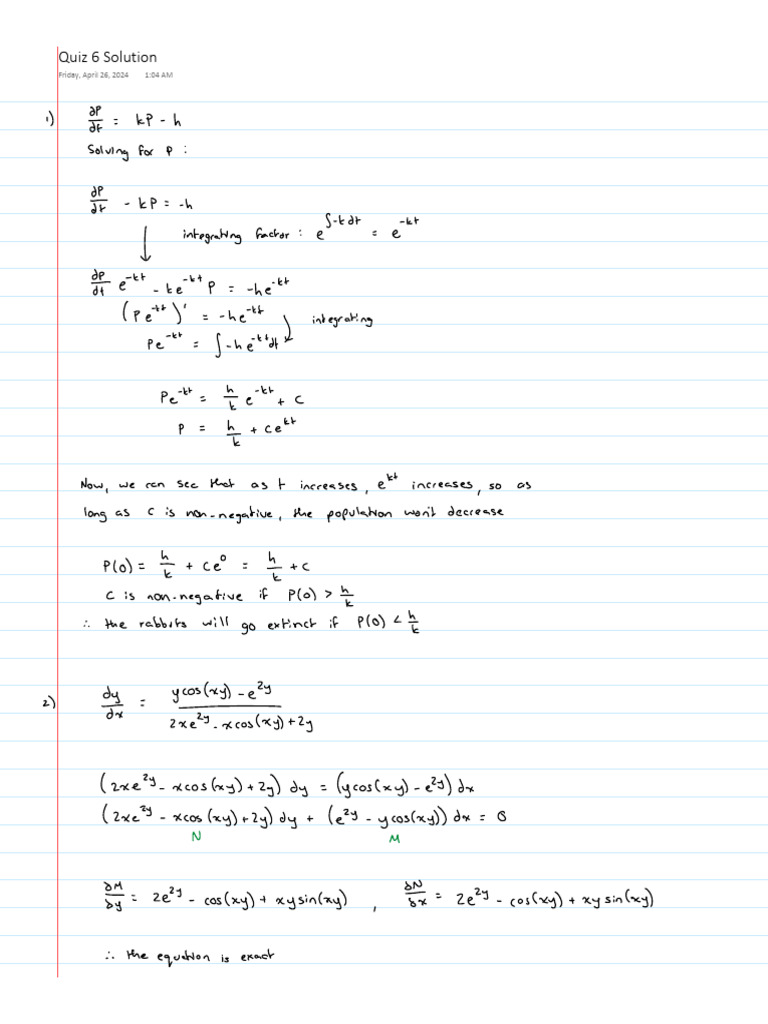 Quiz 6 Solution
Friday, April 26, 2024 1:04 AM
1) ∂P/∂t = kP - h
Solving for P :
∂P/∂t - kP = -h
integrating factor : e^(∫-k dt) = e^(-kt)
∂P/∂t e^(-kt) - ke^(-kt) P = -he^(-kt)
(Pe^(-kt))' = -he^(-kt)
integrating
Pe^(-kt) = ∫-he^(-kt) dt
Pe^(-kt) = h/k e^(-kt) + C
P = h/k + Ce^(kt)
Now, we can see that as t increases, e^(kt) increases, so as
long as C is non-negative, the population won't decrease
P(0) = h/k + Ce^0 = h/k + C
C is non-negative if P(0) > h/k
∴ the rabbits will go extinct if P(0) < h/k
2) dy/dx = (ycos(xy) - e^(2y))/(2xe^(2y) - xcos(xy) + 2y)
(2xe^(2y) - xcos(xy) + 2y) dy = (ycos(xy) - e^(2y)) dx
(2xe^(2y) - xcos(xy) + 2y) dy + (e^(2y) - ycos(xy)) dx = 0
N M
∂M/∂y = 2e^(2y) - cos(xy) + xysin(xy) , ∂N/∂x = 2e^(2y) - cos(xy) + xysin(xy)
∴ the equation is exact